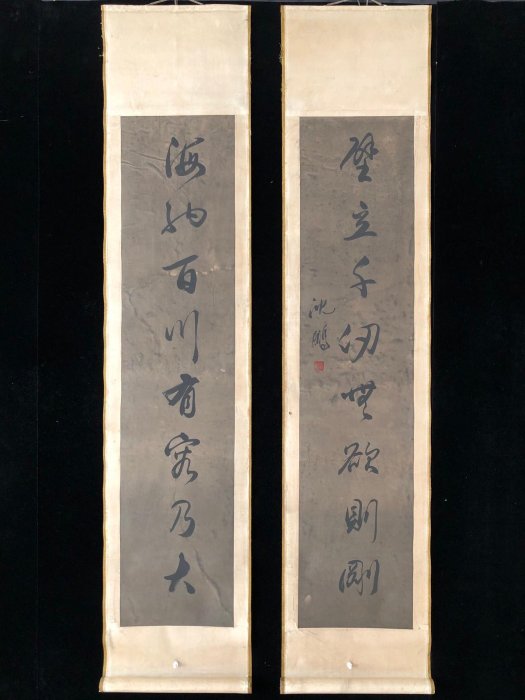 壁立千仞無欲則剛
沈鵬
海納百川有容乃大